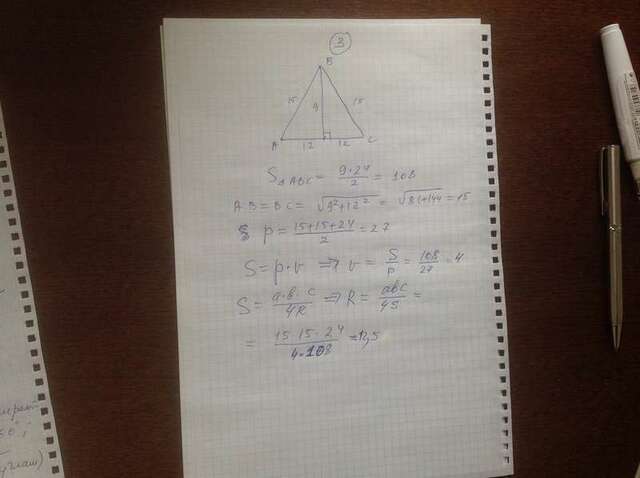 3
B
15 9 15
A 12 12 C
S△ABC = 9·24/2 = 108
AB=BC= √9²+12² = √81+144 = 15
p = 15+15+24/2 = 27
S=p·r ⇒ r = S/p = 108/27 = 4
S = a·b·c/4R ⇒ R = abc/4S =
= 15·15·24/4·108 = 12,5